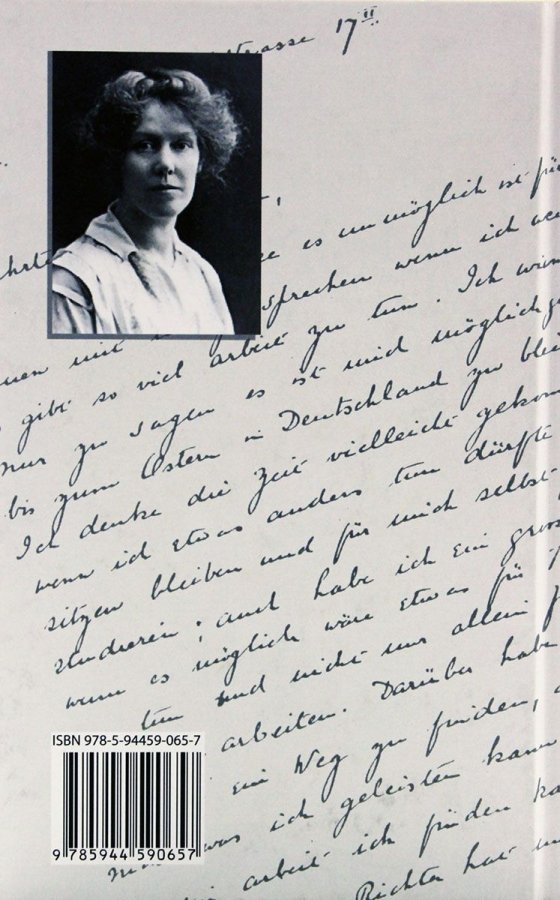 strasse 17 II
es unmöglich ist für
sprechen wenn ich
gibt so viel arbeit zu tun. Ich
nur zu sagen es ist mich möglich
bis zum Ostern in Deutschland zu
Ich denke die Zeit vielleicht
wenn ich etwas anders tun dürfte
sitzen bleiben und für mich selbst
studieren; auch habe ich ein
wenn es möglich wäre etwas für
tun und nicht nur allein
arbeiten. Darüber habe
ein Weg zu finden,
was ich geleisten kann
arbeit ich finden
Richter hat
ISBN 978-5-94459-065-7
9 785944 590657